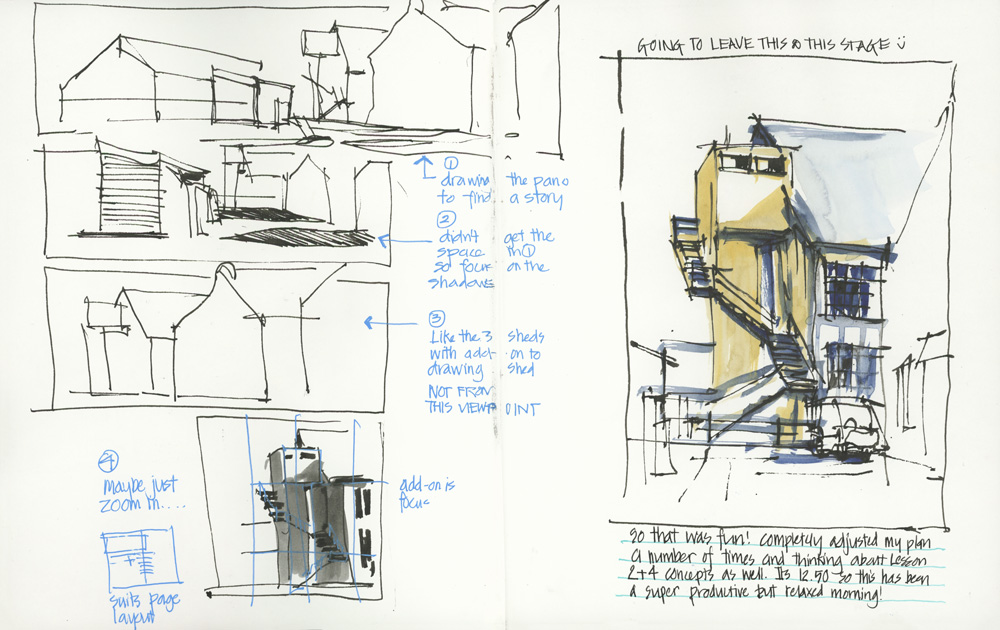 ①
drawing the pano
to find a story
②
didn't get the
space in ①
so focus on the
shadows
③
Like the 3 sheds
with add-on to
drawing shed
NOT FROM
THIS VIEWPOINT
④
maybe just
zoom in....
add-on is
focus
suits page
layout
GOING TO LEAVE THIS @ THIS STAGE
so that was fun! completely adjusted my plan
a number of times and thinking about Lesson
2+4 concepts as well. Its 12.50 so this has been
a super productive but relaxed morning!